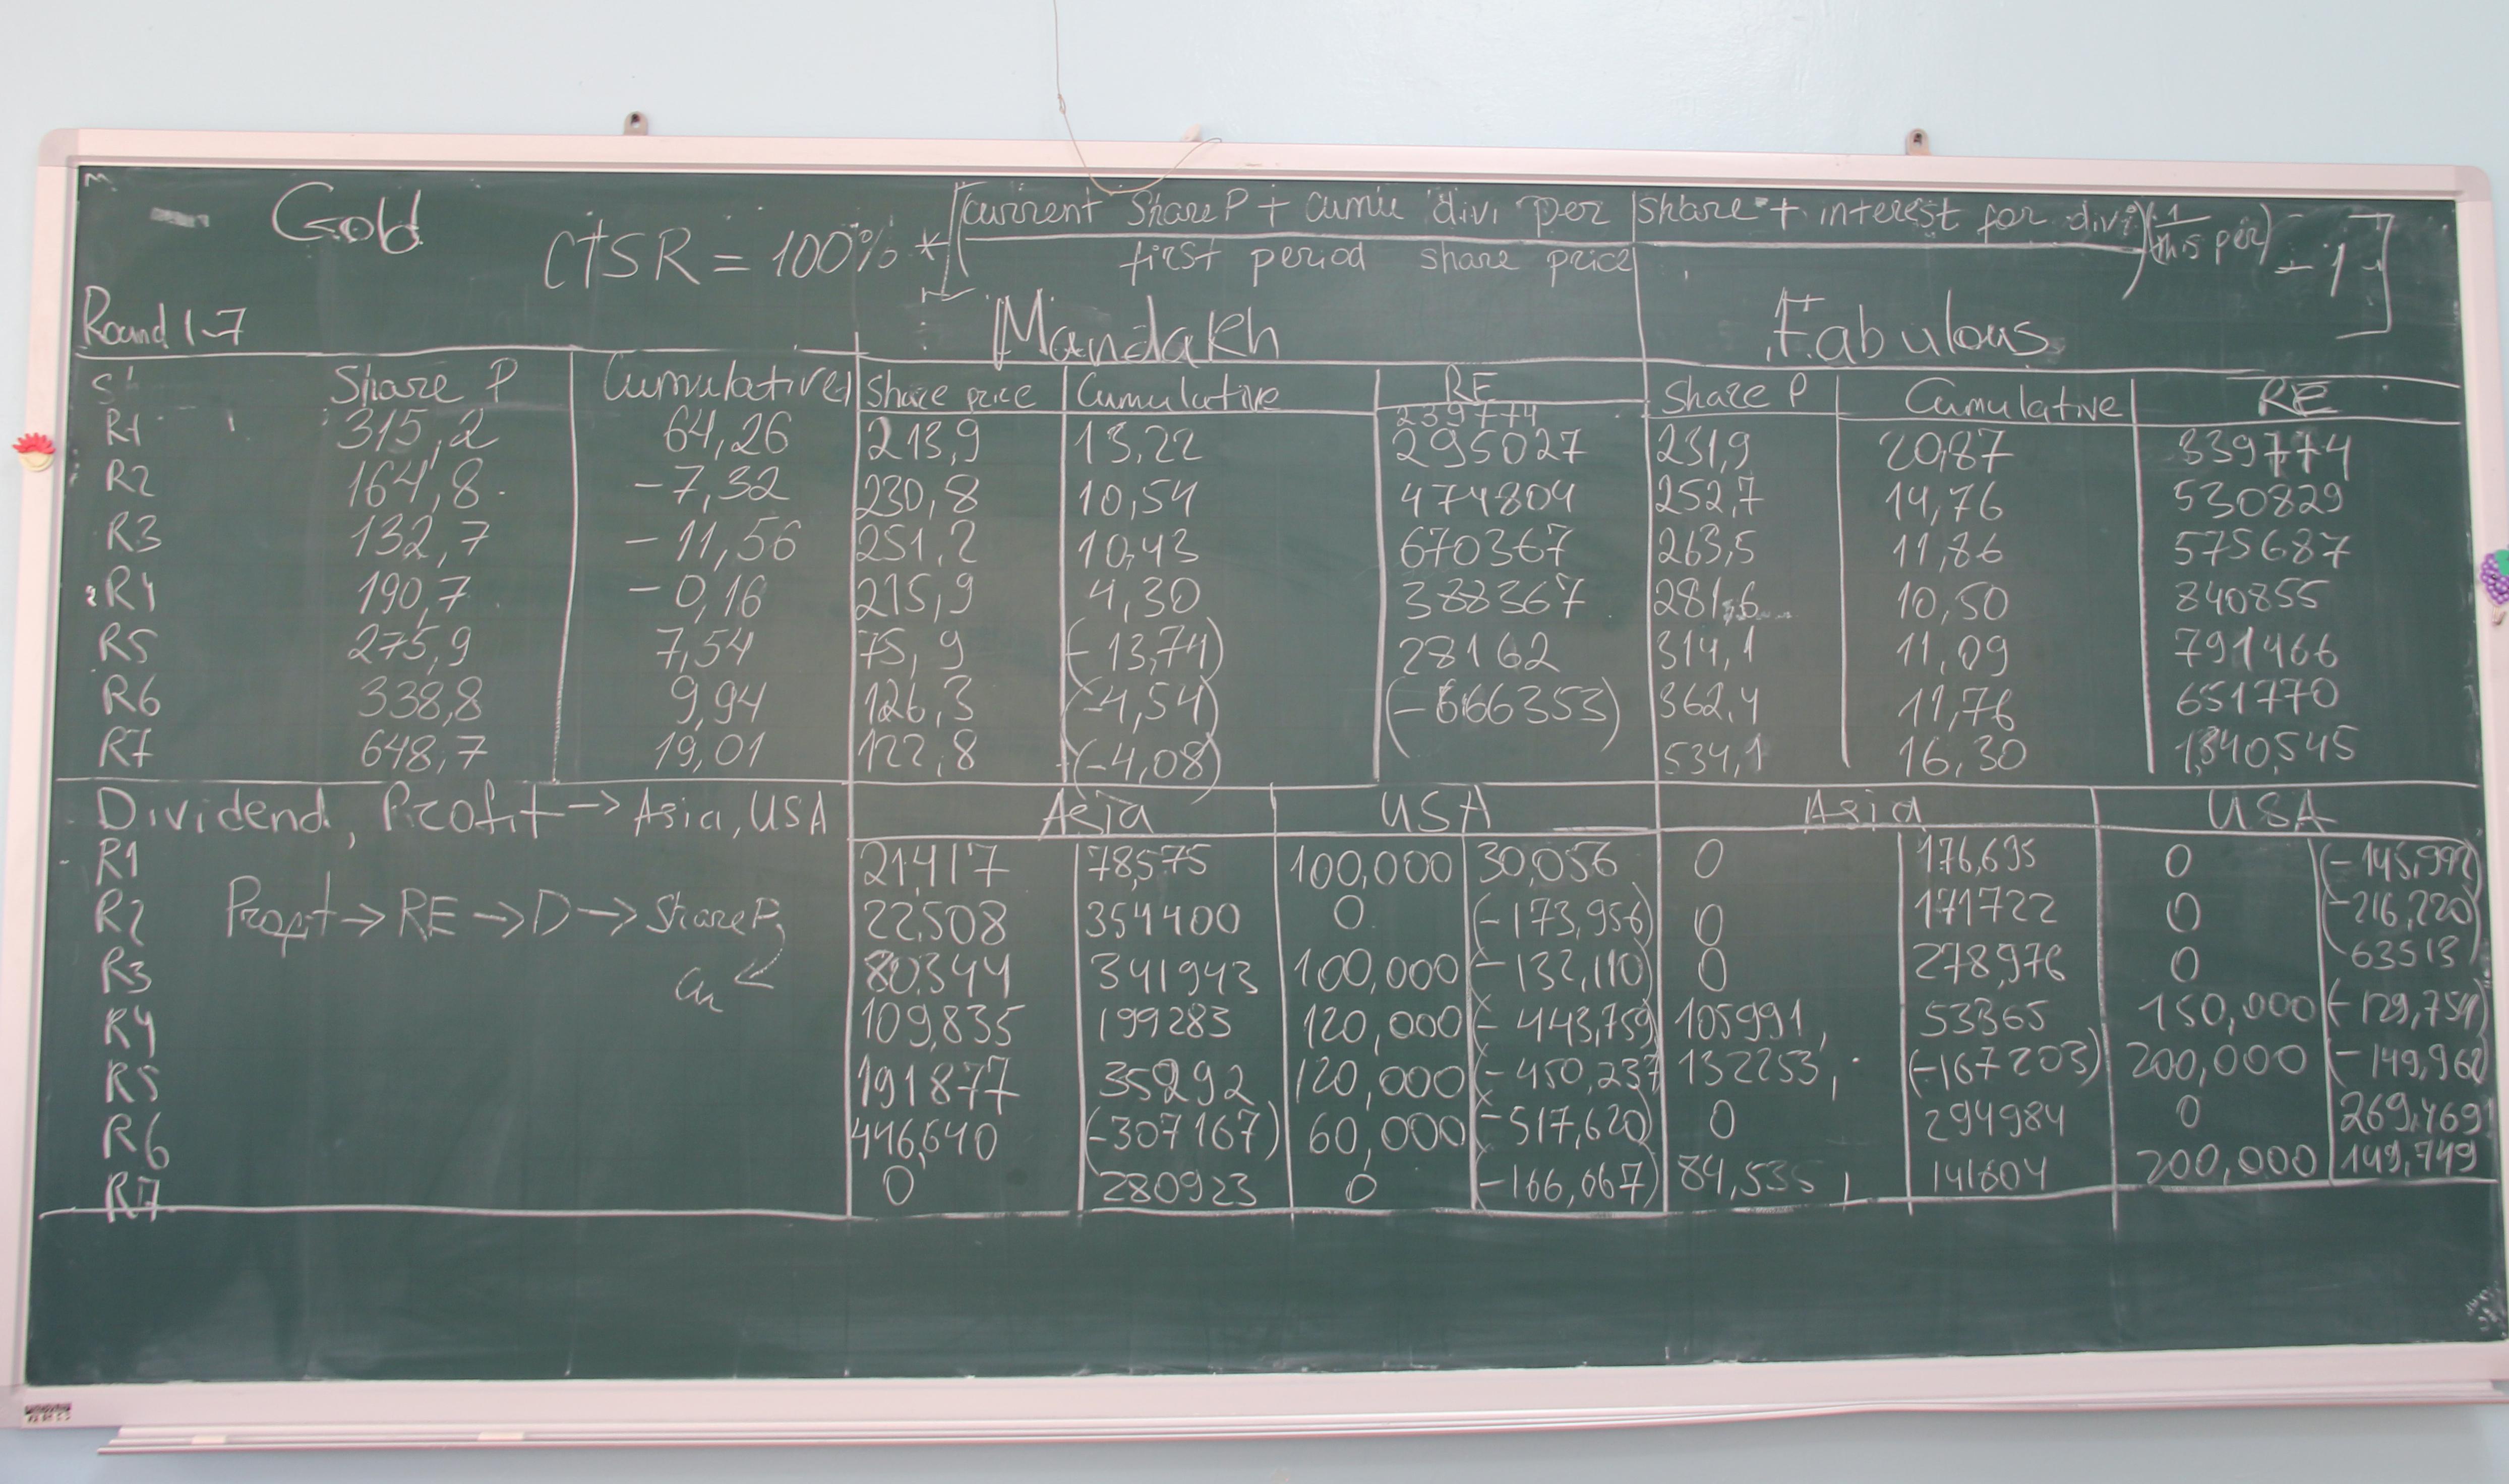 Gold
CTSR = 100% * [(current Share P + cumu divi per share + interest for divi / first period share price)^(1/this per) - 1]
Round 1-7 Mandakh Fabulous
S' Share P Cumulative Share price Cumulative RE Share P Cumulative RE
239774
R1 315,2 64,26 213,9 13,22 295027 231,9 20,87 339774
R2 164,8 -7,32 230,8 10,54 474804 252,7 14,76 530829
R3 132,7 -11,56 251,2 10,43 670367 263,5 11,86 575687
R4 190,7 -0,16 215,9 4,30 388367 281,6 10,50 840855
R5 275,9 7,54 75,9 (-13,74) 28162 314,1 11,09 791466
R6 338,8 9,94 126,3 (-4,54) (-666353) 362,4 11,76 651770
R7 648,7 19,01 122,8 (-4,08) 534,1 16,30 1,340,545
Dividend, Profit -> Asia, USA Asia USA Asia USA
R1 21,417 78,575 100,000 30,056 0 176,695 0 (-145,992)
R2 Profit -> RE -> D -> Share P, 22,508 354400 0 (-173,956) 0 171722 0 (-216,220)
R3 80,344 341943 100,000 (-132,110) 0 278,976 0 63513
R4 109,835 199283 120,000 (-443,759) 105991, 53365 150,000 (-129,754)
R5 191877 35292 120,000 (-450,237 132253, (-167203) 200,000 (-149,962)
R6 446,640 (-307167) 60,000 (-517,620) 0 294984 0 269,469
R7 0 280923 0 (-166,067) 84,535, 141604 200,000 149,749